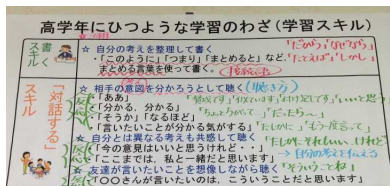 高学年にひつような学習のわざ(学習スキル)
書くスキル
☆ 自分の考えを整理して書く
・「このように」「つまり」「まとめると」など、
まとめる言葉を使って書く。
「だから」「なぜなら」
「たとえば」「しかし」
「対話する」スキル
☆ 相手の意図を分かろうとして聴く(聴き方)
・「ああ」
・「分かる、分かる」
・「そうか」「なるほど」
・「言いたいことが分かる気がする」
☆ 自分とは異なる考えも共感して聴く
・「今の意見はいいと思うけれど・・」
・「ここまでは、私と一緒だと思います」
「たしかにそれもいい、けれど」
→自分の考えを伝える
☆ 友達が言いたいことを想像しながら聴く
・「〇〇さんが言いたいのは、こういうことだと思います」
「そういうことね」